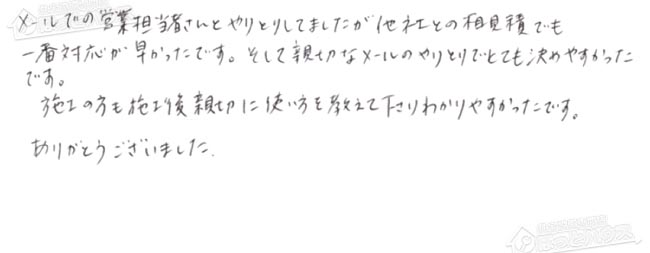 メールでの営業担当者さんとやりとりしてましたが他社との相見積でも
一番対応が早かったです。そして親切なメールのやりとりでとても決めやすかった
です。
施工の方も施工後親切に使い方を教えて下さりわかりやすかったです。
ありがとうございました.